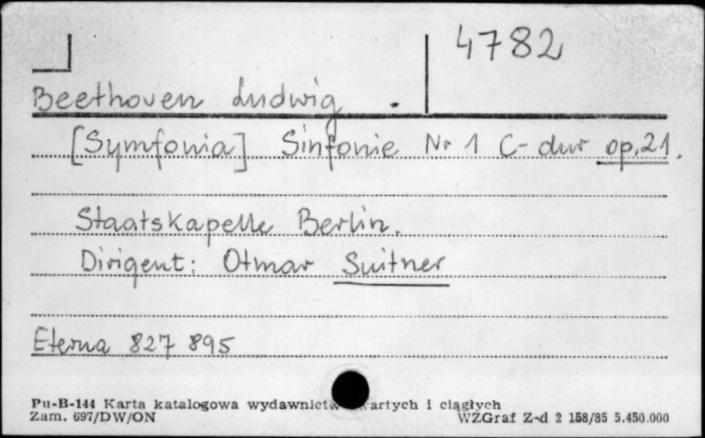 4782
Beethoven Ludwig .
[Symfonia] Sinfonie Nr 1 C-dur op. 21.
Staatskapelle Berlin.
Dirigent: Otmar Suitner
Eterna 827 895
Pu-B-144 Karta katalogowa wydawnictw wartych i ciągłych
Zam. 697/DW/ON WZGraf Z-d 2 158/85 5.450.000